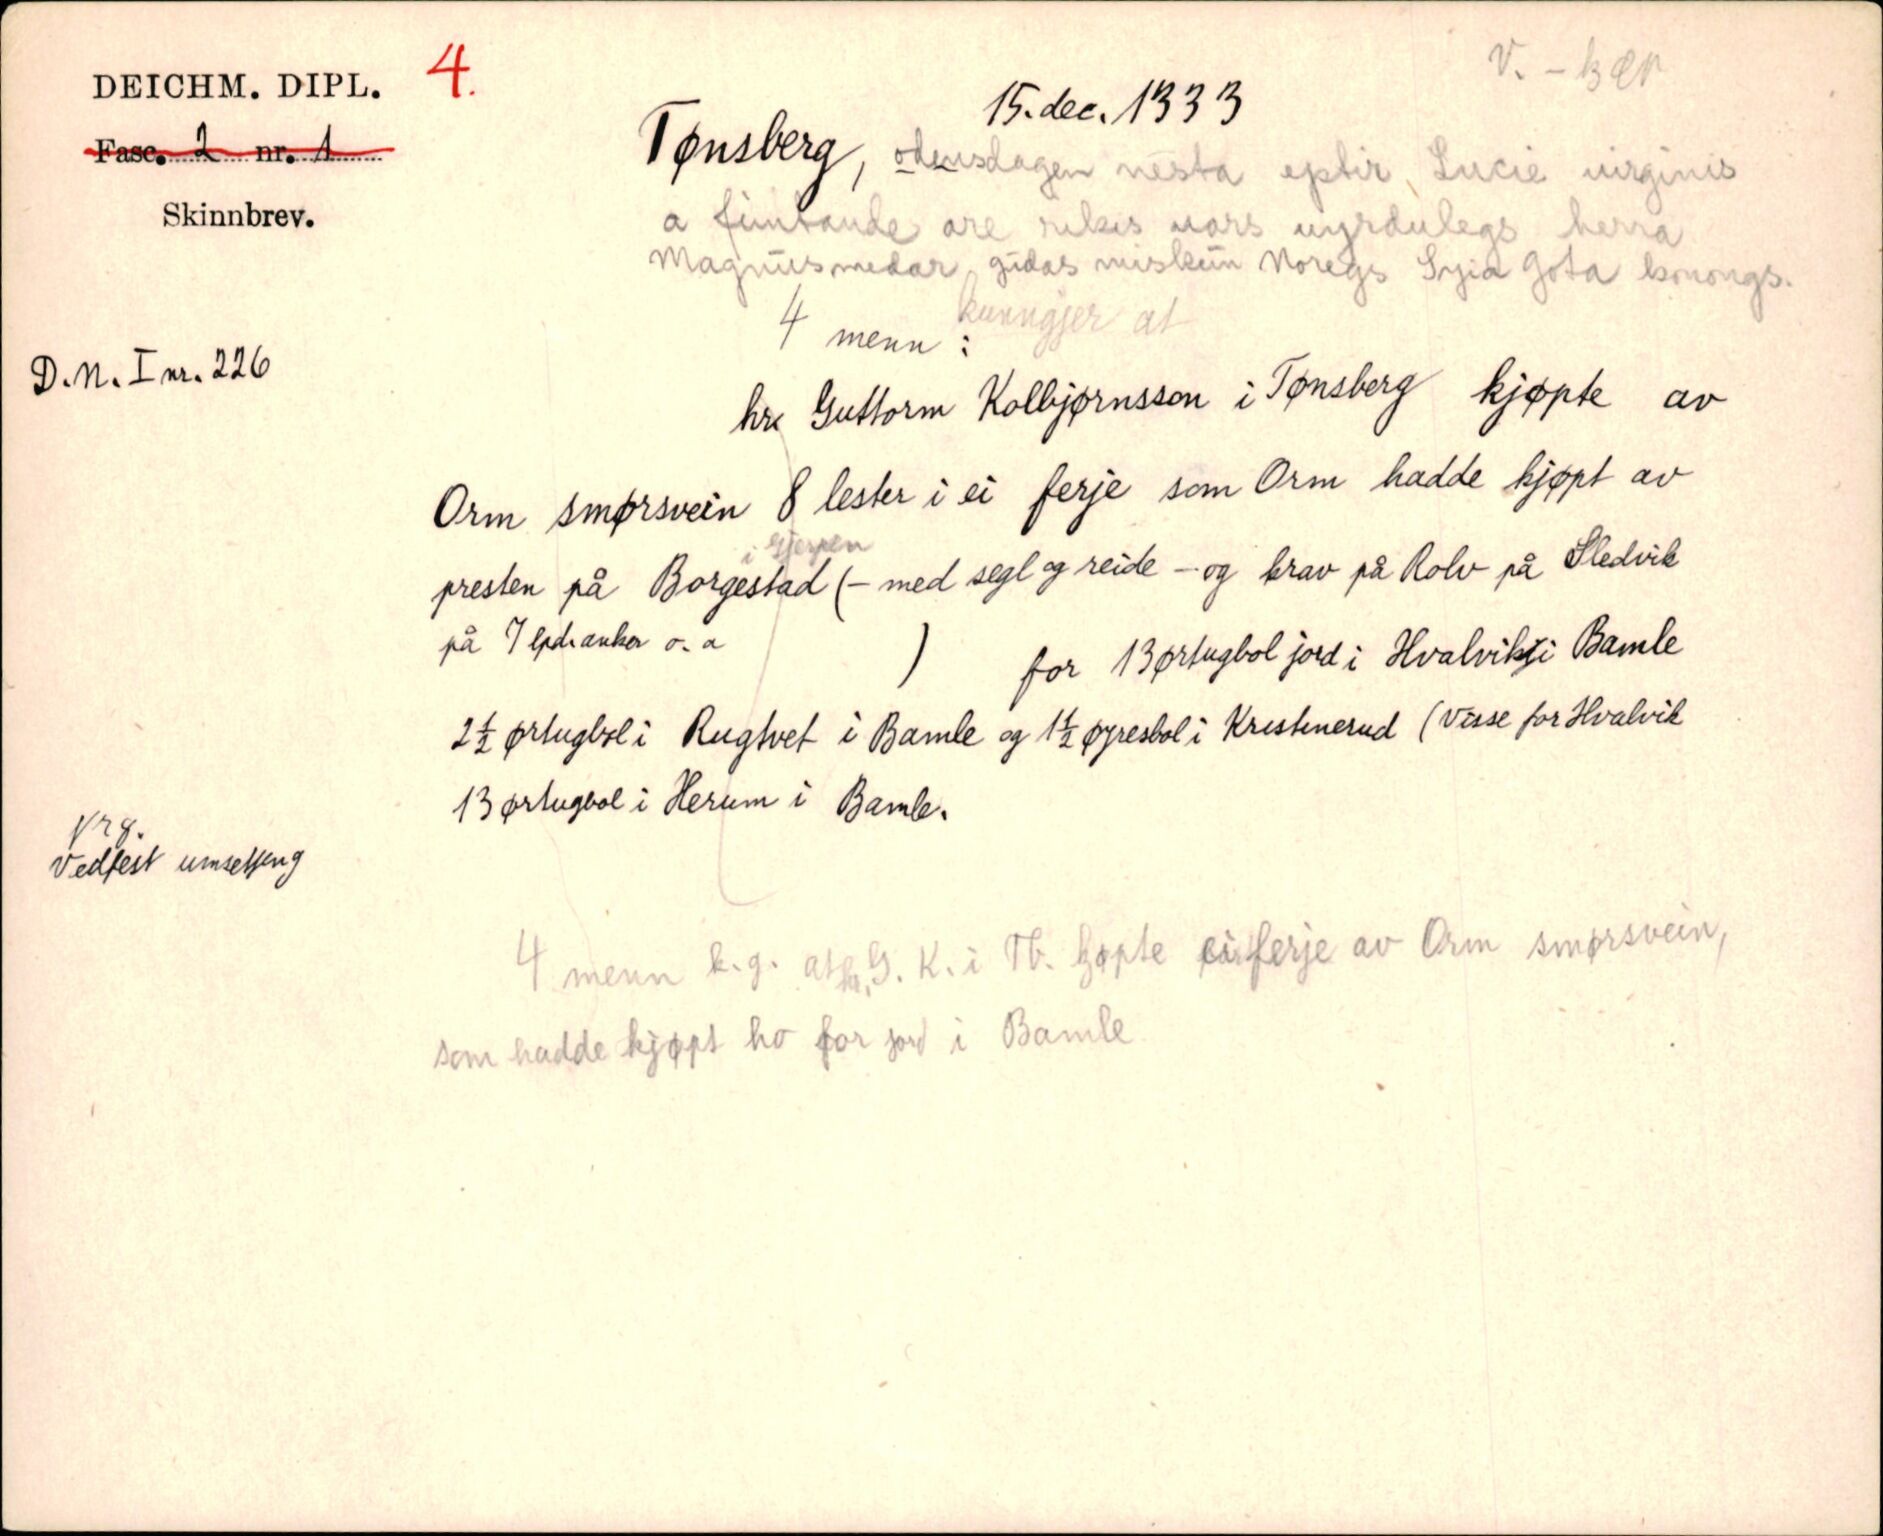 DEICHM. DIPL. 4.
Fasc. 2 nr. 1
Skinnbrev.
V. -
15. dec. 1333
Tønsberg, odensdagen nesta eptir Lucie uirginis
a fimtande are rikis uors uyrdulegs herra
Magnus medar gudas miskun Noregs Syia Gota konongs.
4 menn : kunngjer at
D.N. I nr. 226
hr. Guttorm Kolbjørnsson i Tønsberg kjøpte av
Orm smørsvein 8 lester i ei ferje som Orm hadde kjøpt av
i Gjerpen
presten på Borgestad (- med segl og reide - og krav på Rolv på Sledvik
på 7 lpd. anker o. a ) for 13 ørtugbol jord i Hvalvik i Bamle
2½ ørtugbol i Rugtvet i Bamle og 1½ øyresbol i Kristinerud (Visse for Hvalvik
13 ørtugbol i Herum i Bamle.
Vedfest umsetjing
4 menn k.g. at hr. G. K. i Tb. kjøpte ferje av Orm smørsvein,
som hadde kjøpt ho for jord i Bamle